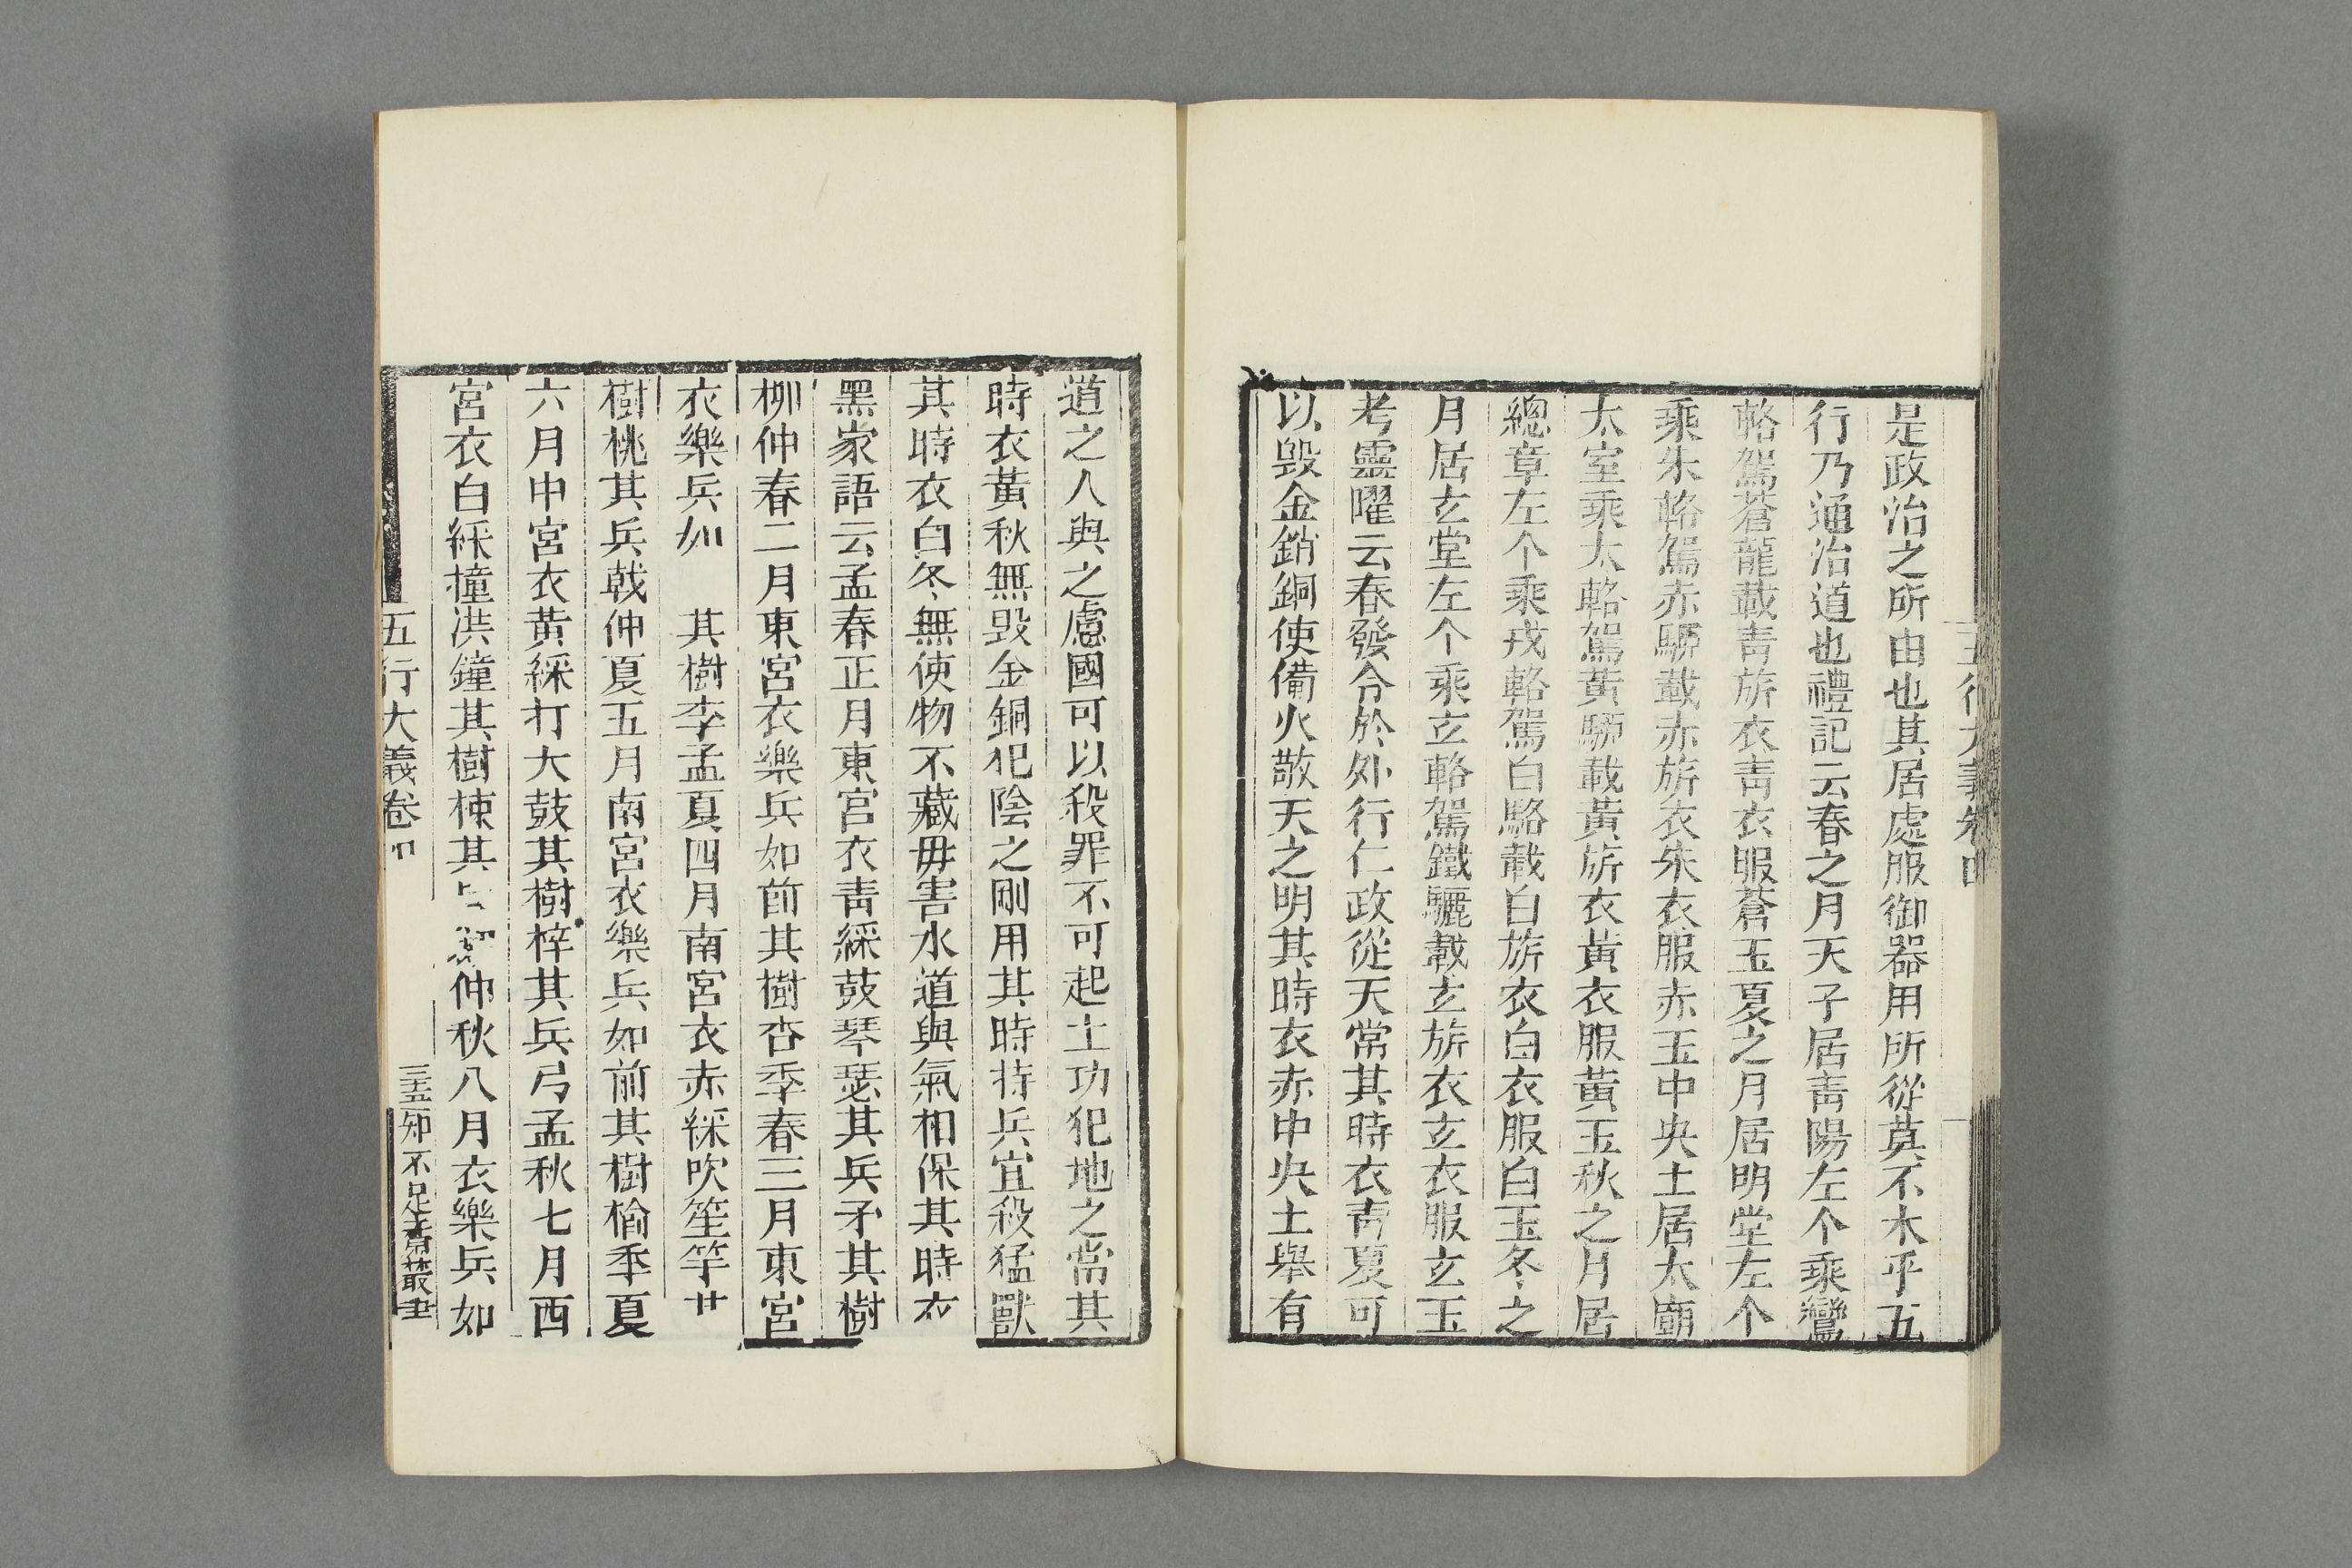 五行大義卷四
是政治之所由也其居處服御器用所從莫不木乎五
行乃通治道也禮記云春之月天子居靑陽左个乘鸞
輅駕蒼龍載靑旂衣靑衣服蒼玉夏之月居明堂左个
乘朱輅駕赤騂載赤旂衣朱衣服赤玉中央土居太廟
太室乘太輅駕黃騂載黃旂衣黃衣服黃玉秋之月居
總章左个乘戎輅駕白駱載白旂衣白衣服白玉冬之
月居玄堂左个乘玄輅駕鐵驪載玄旂衣玄衣服玄玉
考靈曜云春發令於外行仁政從天常其時衣靑夏可
以毀金銷銅使備火敬天之明其時衣赤中央土舉有
道之人與之慮國可以殺罪不可起土功犯地之常其
時衣黃秋無毀金銅犯陰之剛用其時持兵宜殺猛獸
其時衣白冬無使物不藏毋害水道與氣相保其時衣
黑家語云孟春正月東宮衣靑綵鼓琴瑟其兵矛其樹
柳仲春二月東宮衣樂兵如前其樹杏季春三月東宮
衣樂兵如 其樹李孟夏四月南宮衣赤綵吹笙竽
樹桃其兵戟仲夏五月南宮衣樂兵如前其樹榆季夏
六月中宮衣黃綵打大鼓其樹梓其兵弓孟秋七月西
宮衣白綵撞洪鐘其樹楝其 仲秋八月衣樂兵如
五行大義卷四 三 知不足齋叢書